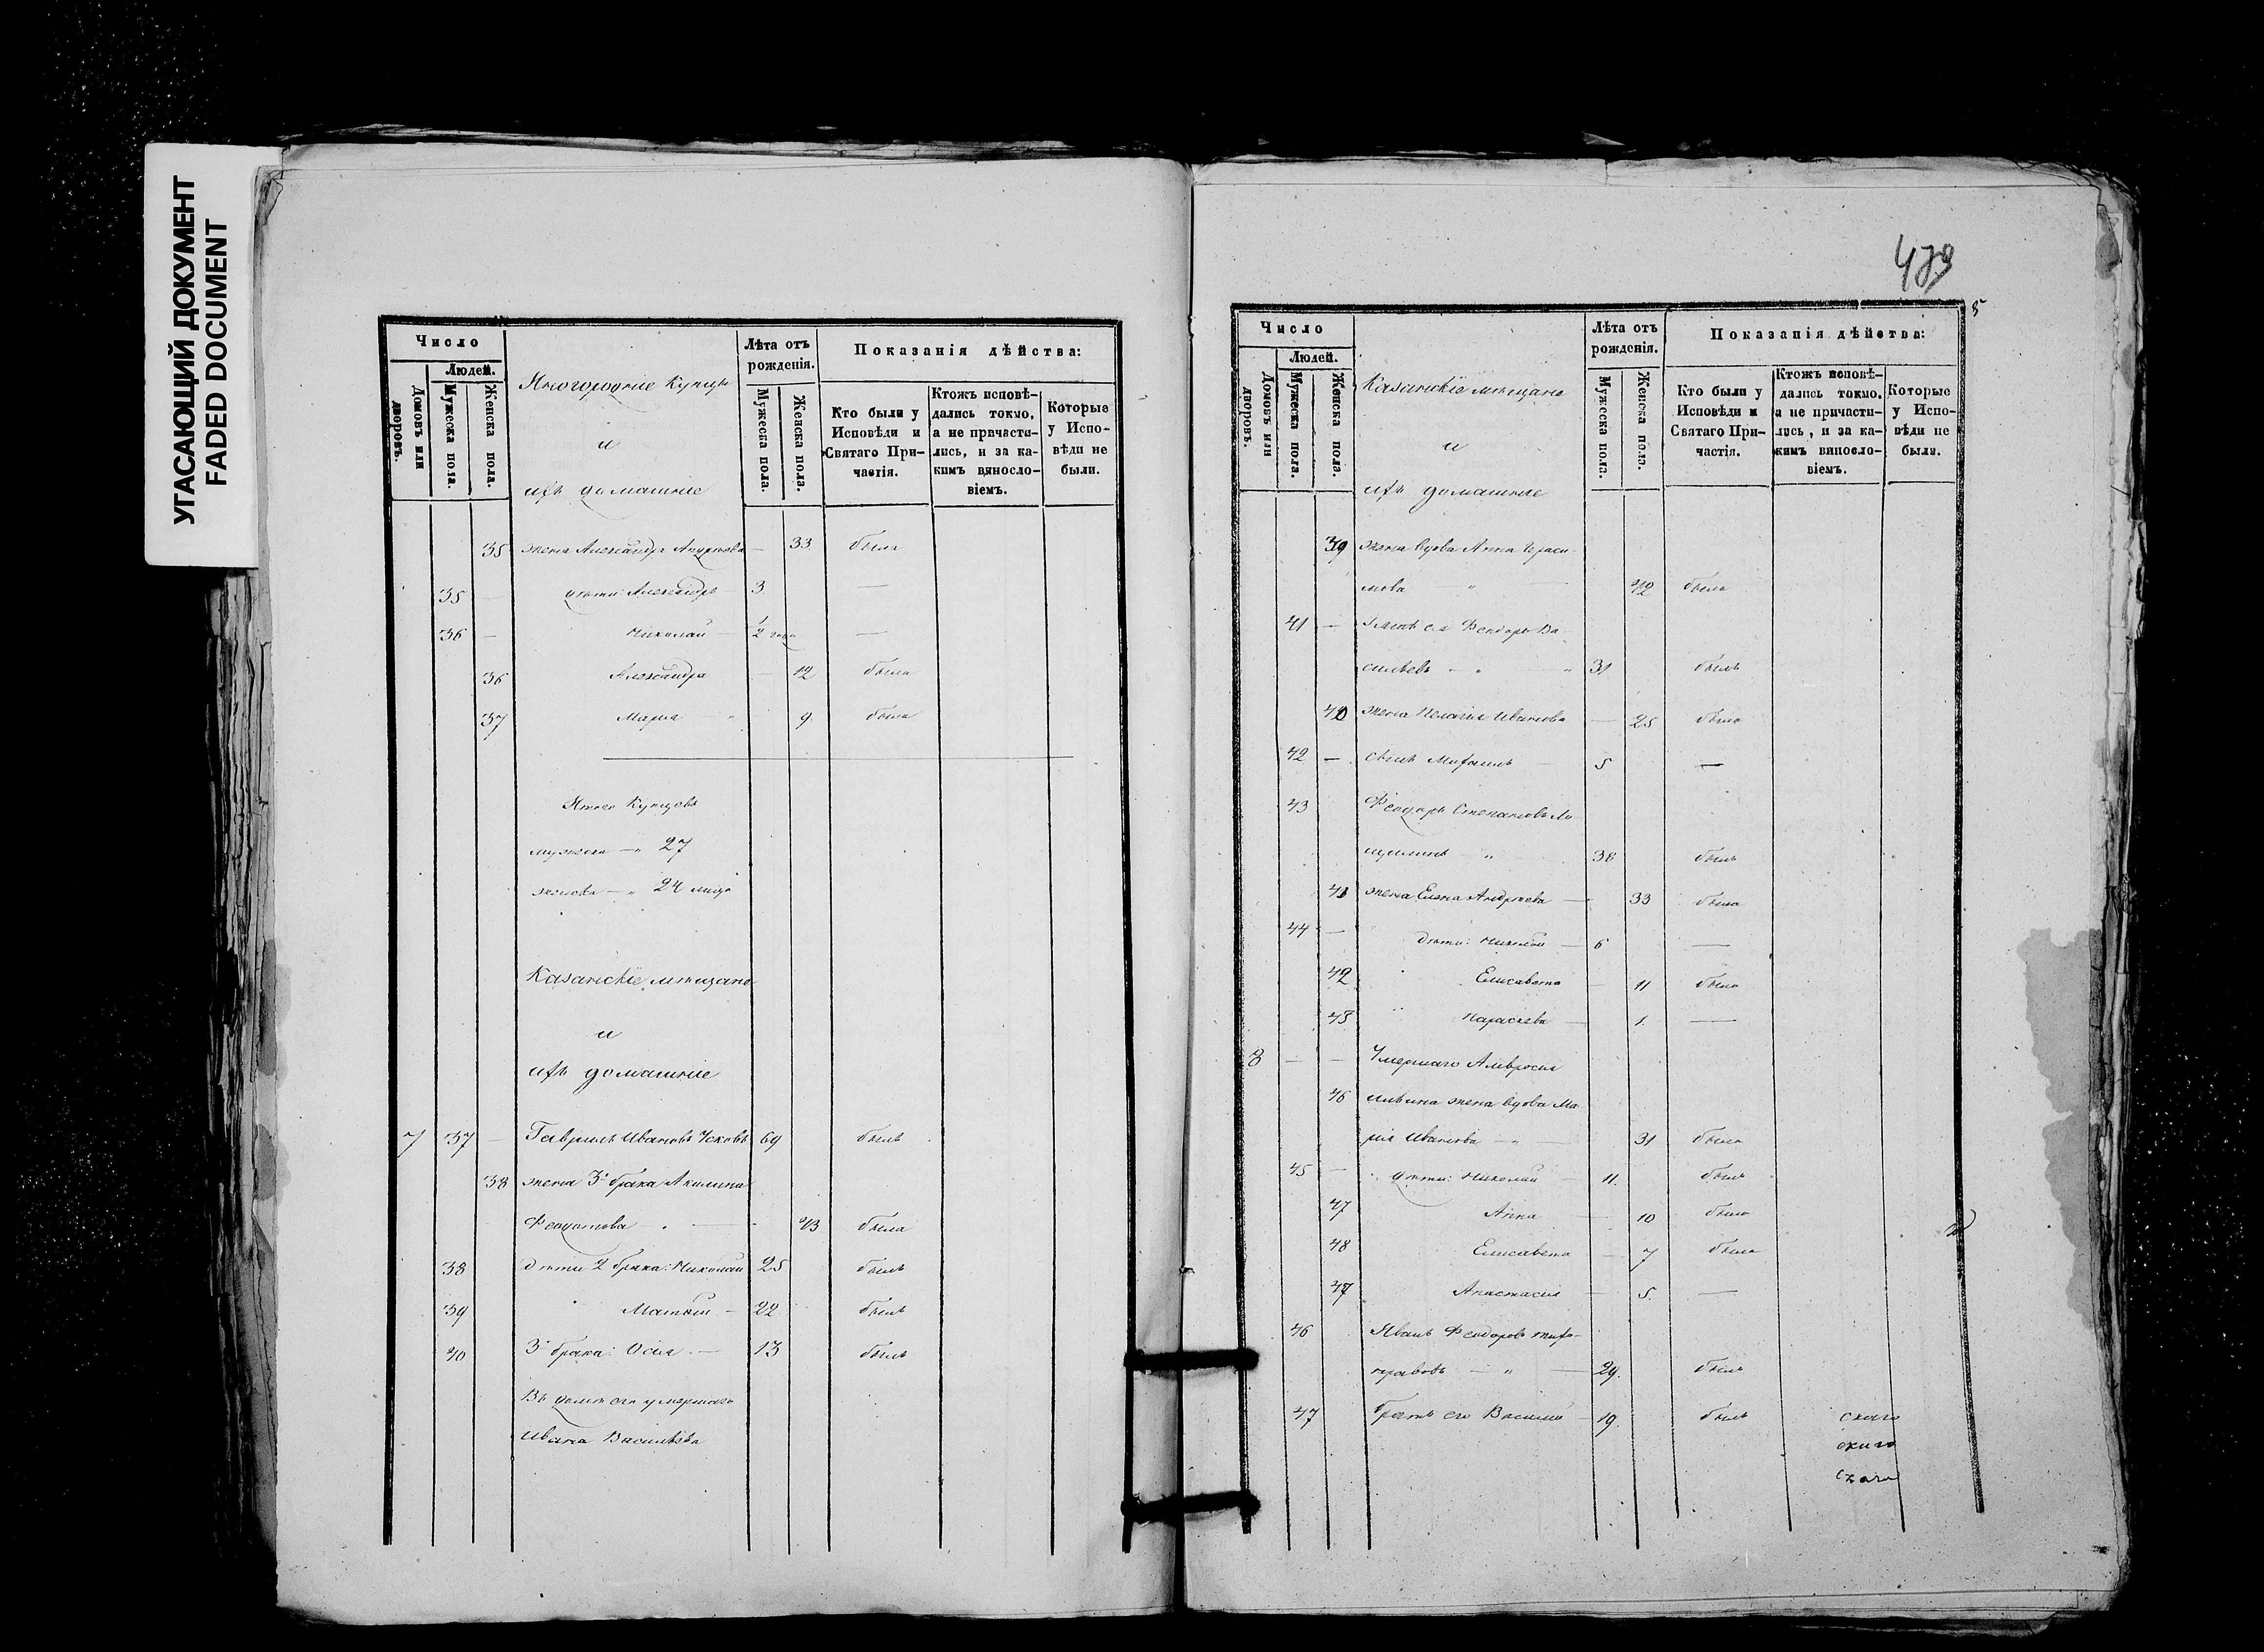 УГАСАЮЩИЙ ДОКУМЕНТ
FADED DOCUMENT
Число
Людей.
Домовъ или дворовъ.
Мужеска пола.
Женска пола.
Иногородние Купцы
и
ихъ домашние
Лѣта отъ рожденія.
Мужеска пола.
Женска пола.
Показанія дѣйства:
Кто были у Исповѣди и Святаго Причастія.
Ктожъ исповѣдались токмо, а не причастились, и за какимъ винословіемъ.
Которые у Исповѣди не были.
35 жена Александра — 33. была
35 — дѣти: Александръ 3. —
36 — Николай — 1/2 года —
36 Александра — 12 была
37 Марія — " 9. была
Итого Купцовъ
мужеска — " 27
женска — " 24 лица
Казанскіе мѣщане
и
ихъ домашние
7 37 — Гавріилъ Ивановъ 69 былъ
38 жена 3го брака Акилина
Феодотова — 43 была
38 дѣти 2 брака: Николай 25 былъ
39 Матвѣй — 22 былъ
40 3го брака: Осия — 13 былъ
Въ домѣ его умершаго
Ивана Васильева
479
5
Число
Людей.
Домовъ или дворовъ.
Мужеска пола.
Женска пола.
Казанскіе мѣщане
и
ихъ домашние
Лѣта отъ рожденія.
Мужеска пола.
Женска пола.
Показанія дѣйства:
Кто были у Исповѣди и Святаго Причастія.
Ктожъ исповѣдались токмо, а не причастились, и за какимъ винословіемъ.
Которые у Исповѣди не были.
39 жена вдова Анна Гераси-
мова " 42 была
41 — зять ея Феодоръ Ва-
сильевъ — " 31 былъ
40 жена Пелагія Иванова — 25 была
42 — сынъ Михаилъ — 5 —
43 Феодоръ Степановъ
" 38 былъ
41 жена Елена Андреева — 33 была
44 — дѣти: Николай — 6 —
42 Елисавета — 11 была
43 Параскева — 1. —
8 — — Умершаго Амвросия
46 Ильина жена вдова Ма-
рія Иванова — " — 31 была
45 — дѣти: Николай — 11. былъ
47 Анна — 10 была
48 Елисавета — 7 была
47 Анастасия — 5. —
46 Иванъ Феодоровъ
— " — 29. былъ
47 братъ его Василий — 19. былъ
скаго
скаго
скаго